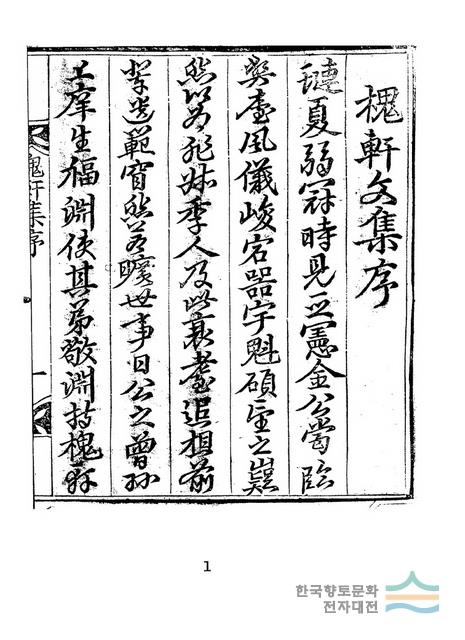 槐軒文集序
璉夏弱冠時見正憲金公嘗臨
弊廬風儀峻宕器宇魁碩望之嶷
然以若非叔季人及此衰耋追想前
輩遺範窅然若曠世事日公之曾孫
上庠生福淵使其弟敬淵持槐軒
槐軒集序 一
1
한국향토문화
전자대전